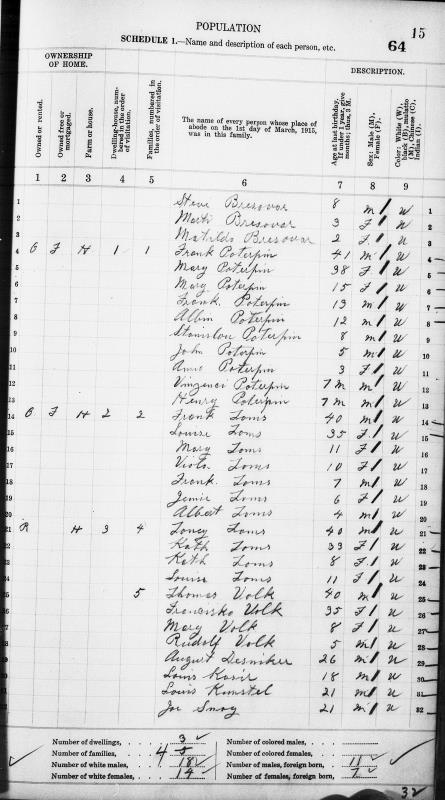 POPULATION
15
SCHEDULE 1.—Name and description of each person, etc.
64
OWNERSHIP OF HOME.
DESCRIPTION.
Owned or rented.
Owned free or mortgaged.
Farm or house.
Dwelling-house, numbered in the order of visitation.
Families, numbered in the order of visitation.
The name of every person whose place of abode on the 1st day of March, 1915, was in this family.
Age at last birthday. If under 1 year, give months; thus, 3 M.
Sex: Male (M), Female (F).
Color: White (W), black (B), mulatto (M), Chinese (C), Indian (I).
1 2 3 4 5 6 7 8 9
1 Steve Bresovar 8 m W 1
2 Bresovar 3 F W 2
3 Matilda Bresovar 2 F W 3
4 O F H 1 1 Frank Poterpin 41 m W 4
5 Mary Poterpin 38 F W 5
6 Mary Poterpin 15 F W 6
7 Frank Poterpin 13 m W 7
8 Albin Poterpin 12 m W 8
9 Stanislou Poterpin 8 m W 9
10 John Poterpin 5 m W 10
11 Anna Poterpin 3 F W 11
12 Poterpin 7 m m W 12
13 Henry Poterpin 7 m m W 13
14 O F H 2 2 Frank Toms 40 m W 14
15 Louise Toms 35 F W 15
16 Mary Toms 11 F W 16
17 Toms 10 F W 17
18 Frank Toms 7 m W 18
19 Jennie Toms 6 F W 19
20 Albert Toms 4 m W 20
21 R H 3 4 Toms 40 m W 21
22 Kath Toms 33 F W 22
23 Kath Toms 8 F W 23
24 Louisa Toms 11 F W 24
25 5 Thomas Volk 40 m W 25
26 Franciska Volk 35 F W 26
27 Mary Volk 8 F W 27
28 Rudolf Volk 5 m W 28
29 August 26 m W 29
30 Louis 18 m W 30
31 Louis 21 m W 31
32 Joe 21 m W 32
Number of dwellings, 3
Number of families, 4 5
Number of white males, 18
Number of white females, 14
Number of colored males,
Number of colored females,
Number of males, foreign born, 11
Number of females, foreign born, 7
32